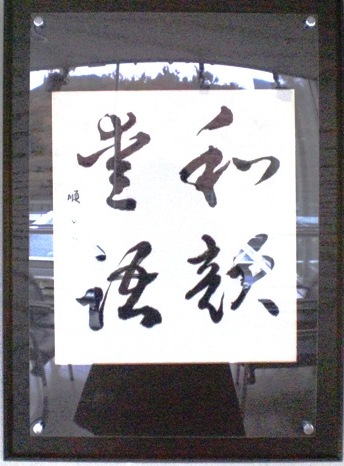 和顔
愛語
順